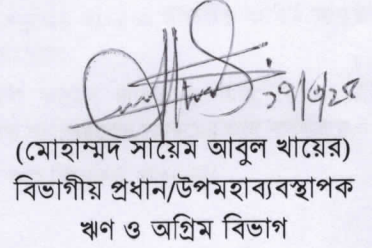 (মোহাম্মদ সায়েম আবুল খায়ের)
বিভাগীয় প্রধান/উপমহাব্যবস্থাপক
ঋণ ও অগ্রিম বিভাগ